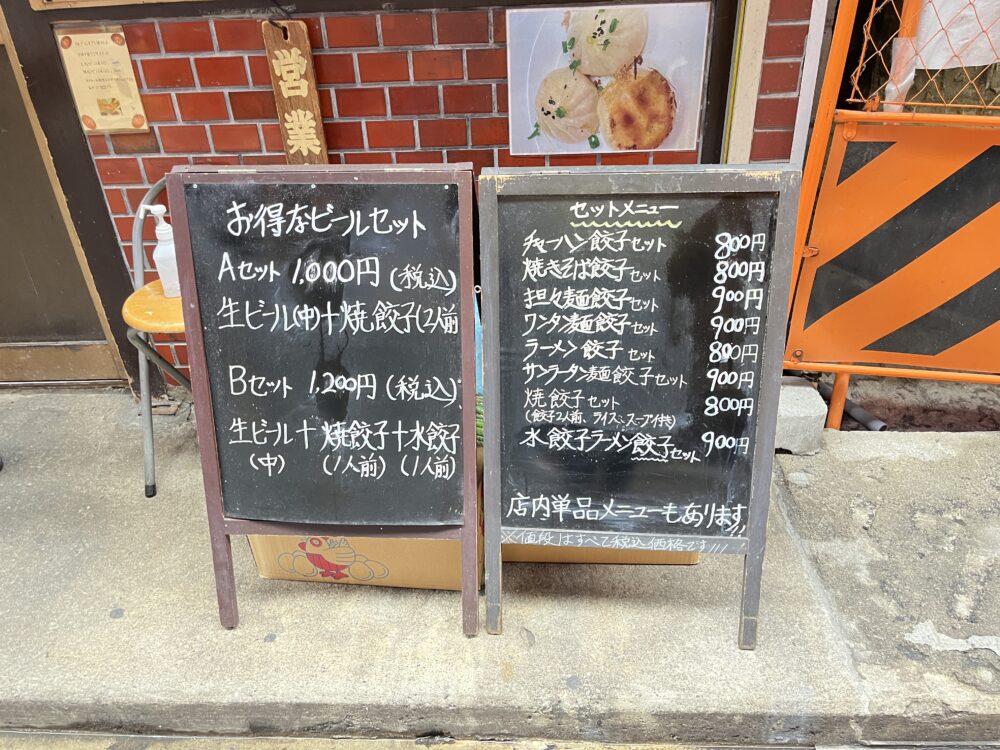 営業
お得なビールセット
Aセット 1,000円(税込)
生ビール(中)+焼餃子(2人前
Bセット 1,200円(税込)
生ビール+焼餃子+水餃子
(中) (1人前) (1人前)
セットメニュー
チャーハン餃子セット 800円
焼きそば餃子セット 800円
担々麺餃子セット 900円
ワンタン麺餃子セット 900円
ラーメン餃子セット 800円
サンラータン麺餃子セット 900円
焼餃子セット 800円
(餃子2人前、ライス、スープ付)
水餃子ラーメン餃子セット 900円
店内単品メニューもあります
※値段はすべて税込価格です